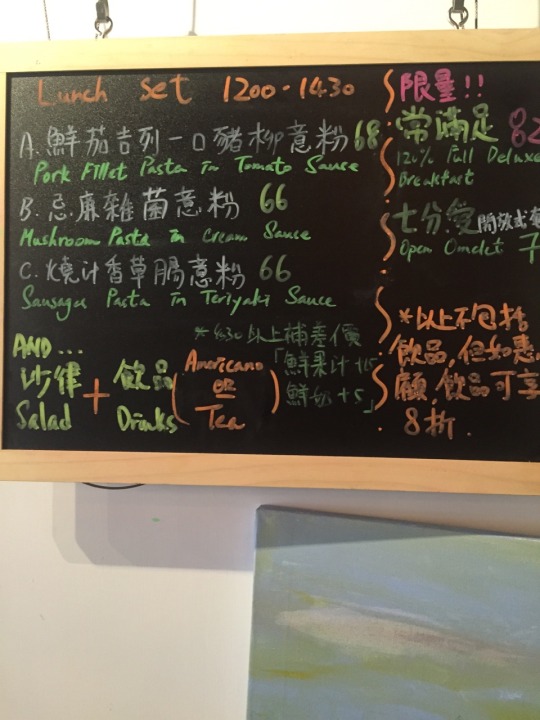 Lunch Set 1200-1430
A. 鮮茄吉列一口豬柳意粉 68
Pork Fillet Pasta in Tomato Sause
B. 忌廉雜菌意粉 66
Mushroom Pasta in Cream Sause
C. 燒汁香草腸意粉 66
Sausage Pasta in Teriyaki Sause
AND...
沙律 + 飲品 (Americano OR Tea)
Salad Drinks
*$30以上補差價
「鮮果汁+15
鮮奶+5」
限量!!
常滿足 82
120% Full Deluxe
Breakfast
七分熒 開放式
Open Omelet 7
*以上不包括
飲品,但如惠
顧,飲品可享
8折.